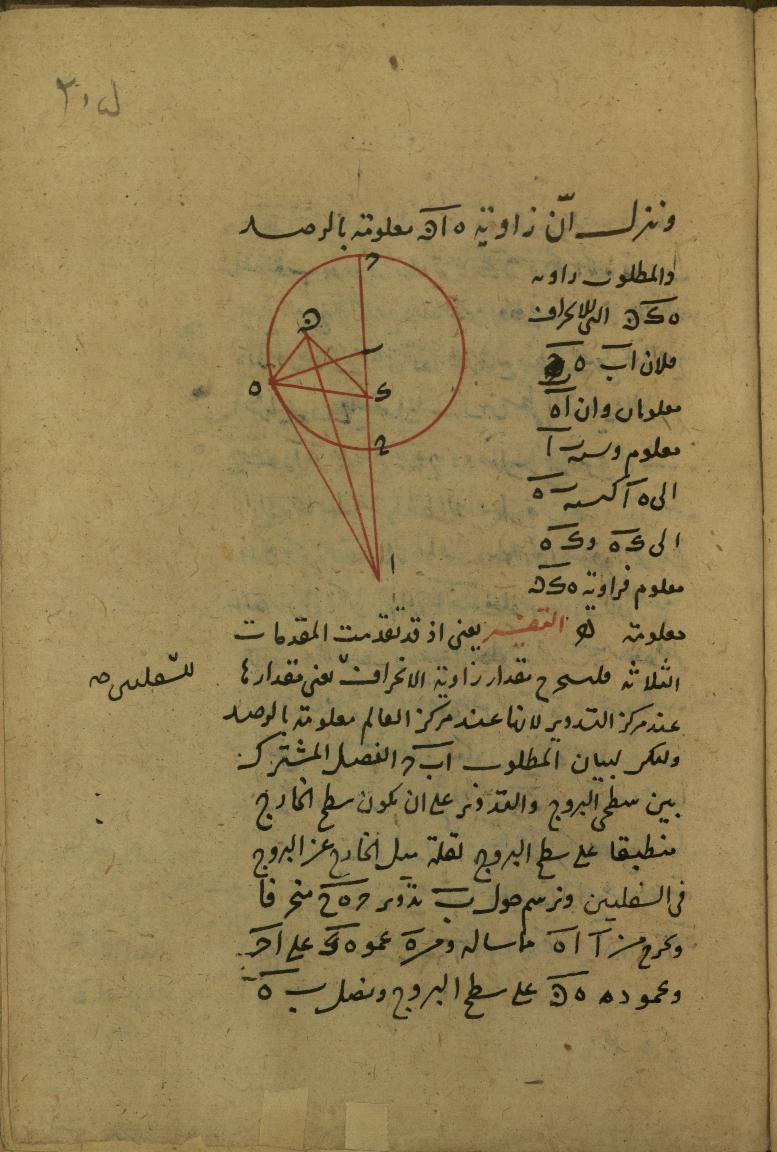 وننزل انّ زاوية ه ا ط معلومة بالرصد
والمطلوب زاوية
ه ك ط التى للانحراف
فلان ا ب ب ه
معلومان وان ا ه
معلوم ونسبة ب ا
الى ه ا كنسبة ب ه
الى ك ه و ك ه
معلوم فزاوية ه ك ط
معلومة التفسير يعنى اذ قد تقدمت المقدمات
الثلاثة فليستخرج مقدار زاوية الانحراف يعنى مقدارها
للسفليين
عند مركز التدوير لانها عند مركز العالم معلومة بالرصد
وليكن لبيان المطلوب ا ب ج الفصل المشترك
بين سطحى البروج والتدوير على ان يكون سطح الخارج
منطبقا على سطح البروج لقلة ميل الخارج عن البروج
فى السفليين ونرسم حول ب تدوير ج ه ح منحرفا
ونخرج من ا ا ه مماسا له ومن ه عمود ه ك على ا ج
وعمود ه ط على سطح البروج ونصل ب ه